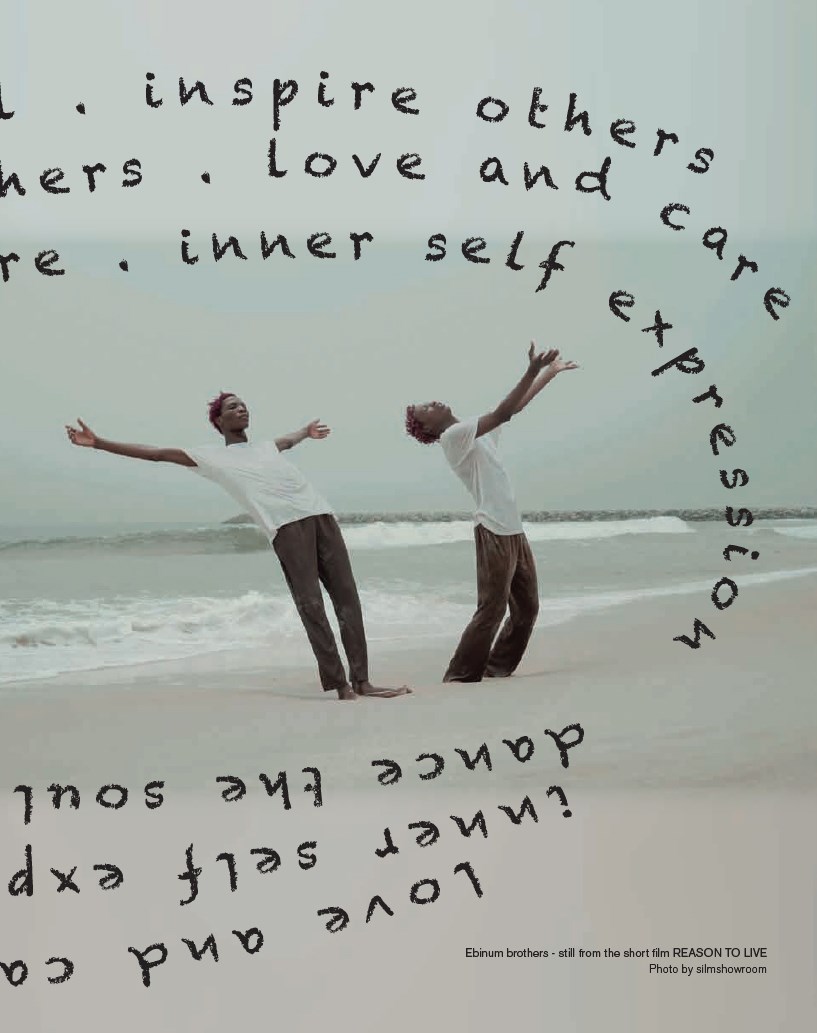 l . inspire others
hers . love and care
re . inner self expression
dance the soul
inner self exp
love and ca
Ebinum brothers - still from the short film REASON TO LIVE
Photo by silmshowroom